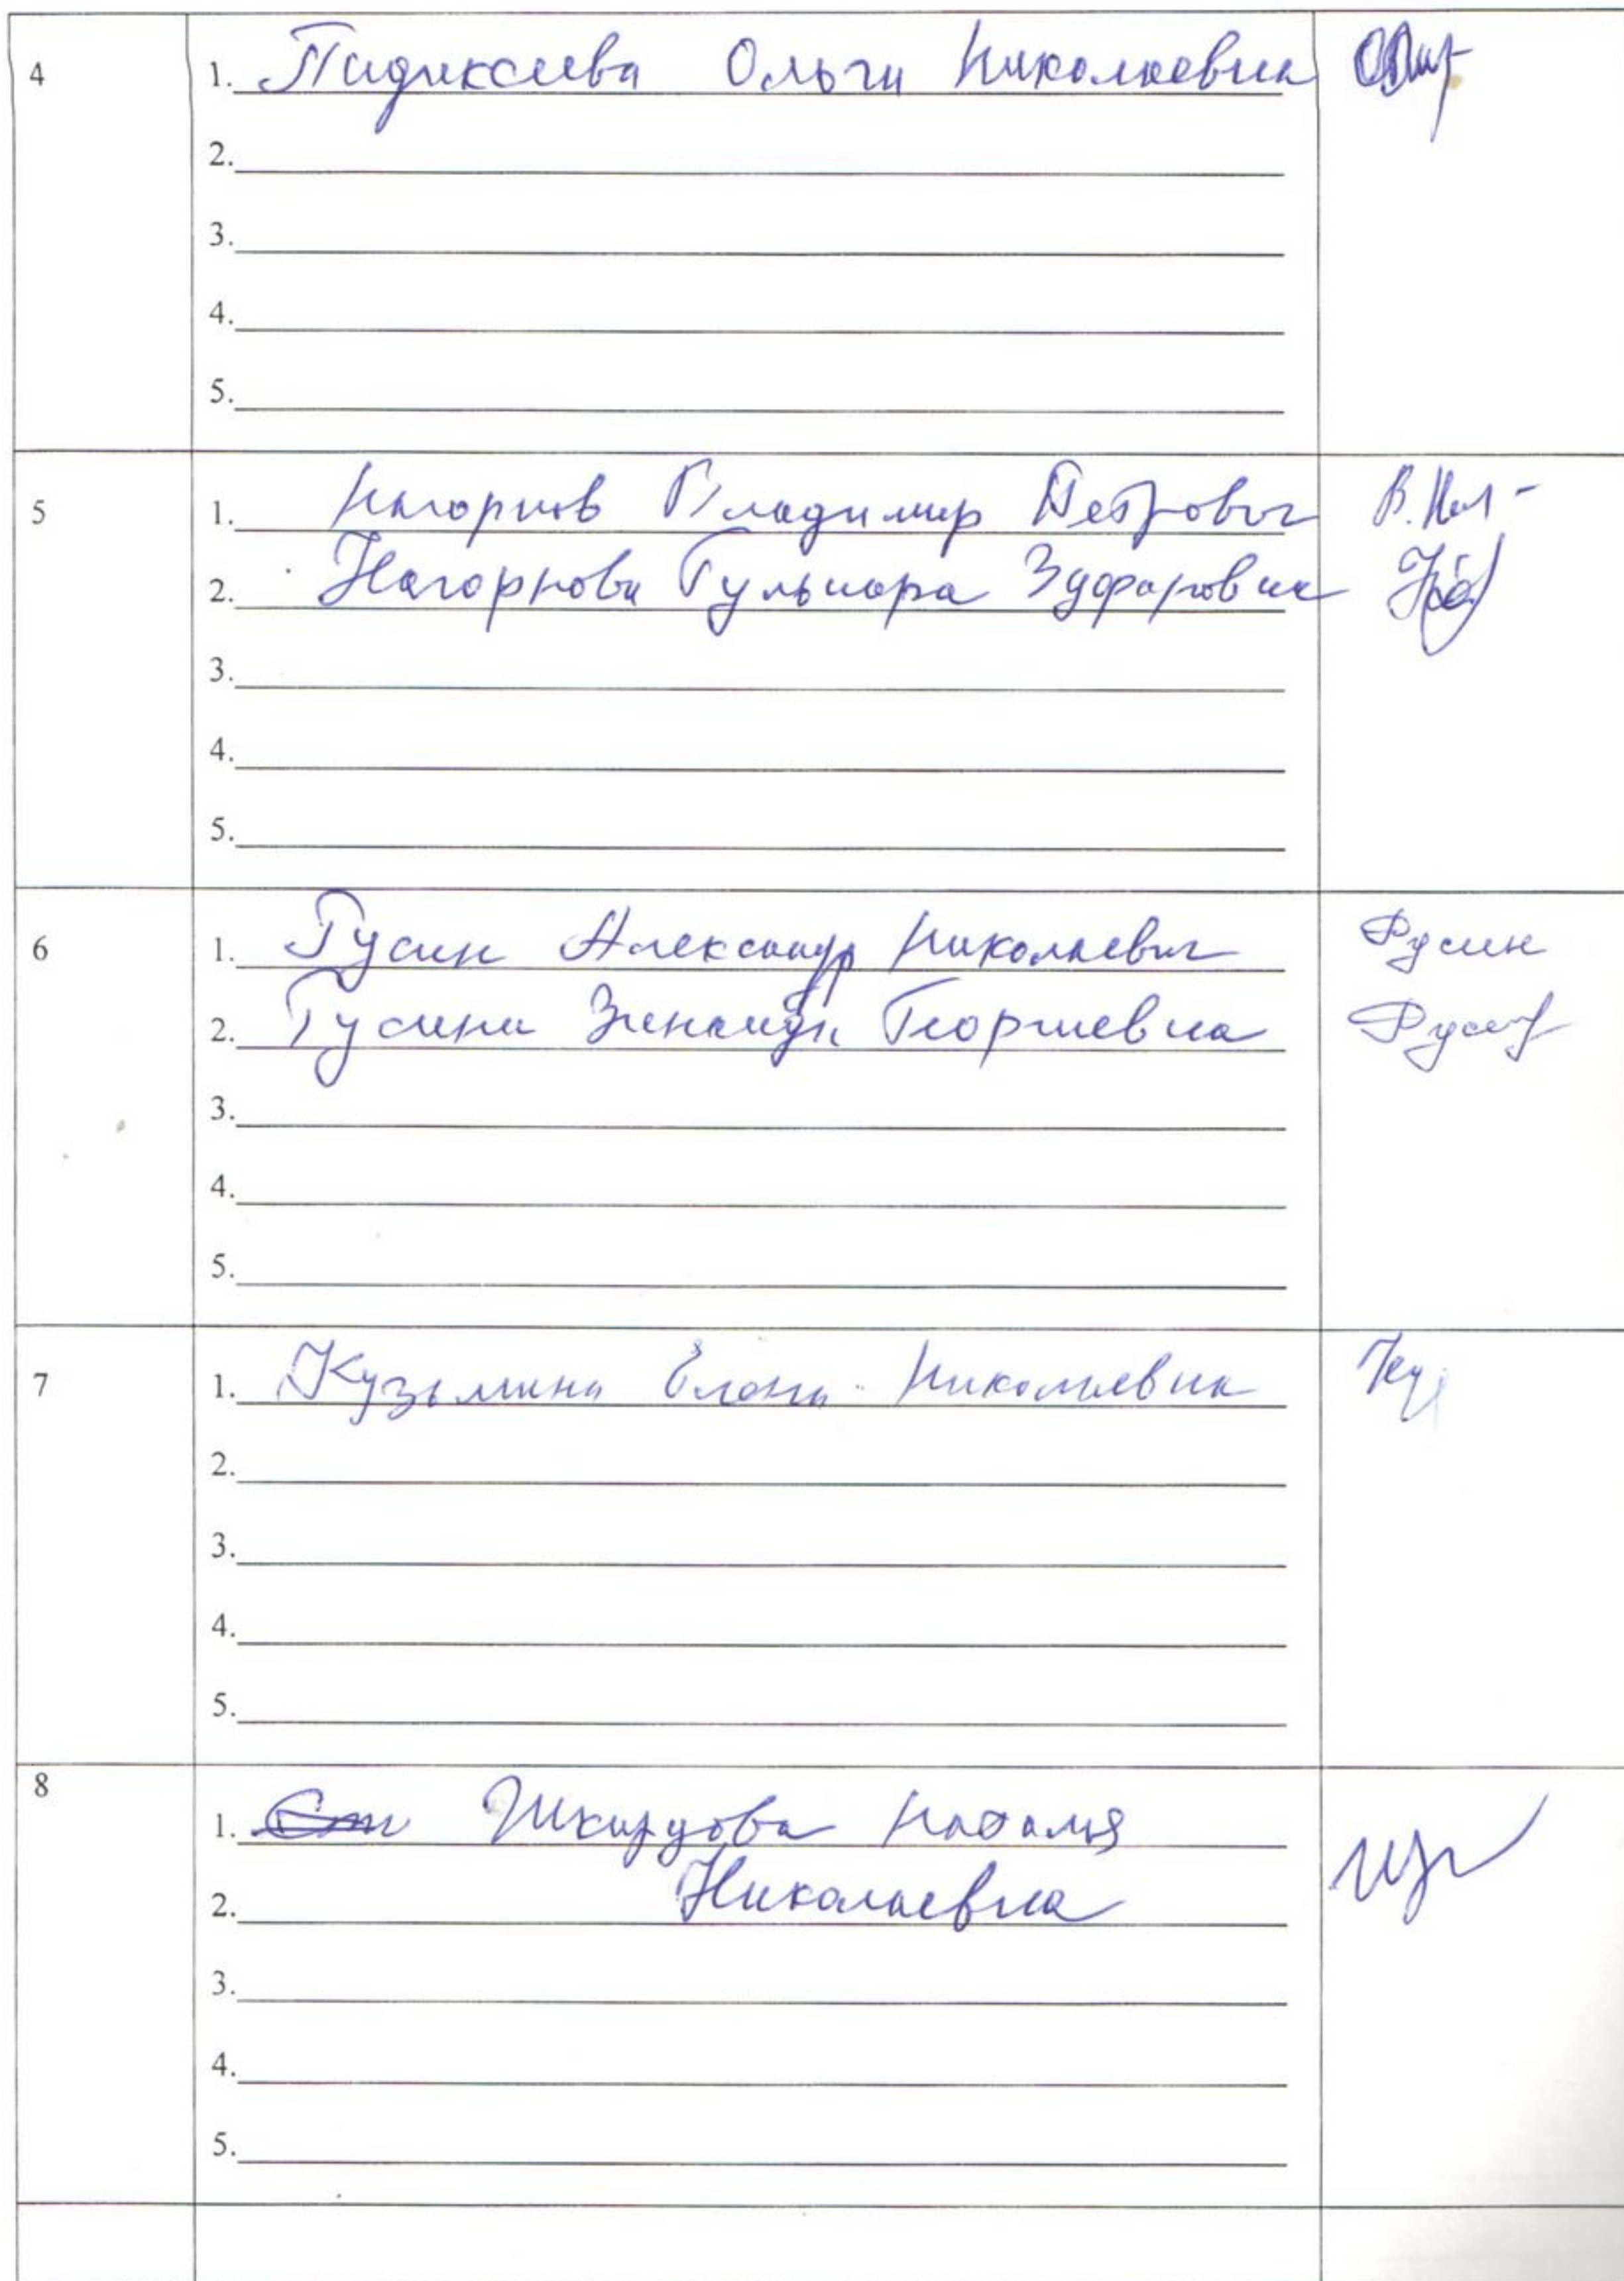 4
1. Пидиксеева Ольга Николаевна
2.
3.
4.
5.
5
1. Нагорнов Владимир Петрович В. Наг-
2. Нагорнова Гульнара Зуфаровна
3.
4.
5.
6
1. Гусин Александр Николаевич Гусин
2. Гусина Зинаида Георгиевна Гусин
3.
4.
5.
7
1. Кузьмина Елена Николаевна Куз
2.
3.
4.
5.
8
1. Шкирдова Наталия
2. Николаевна
3.
4.
5.